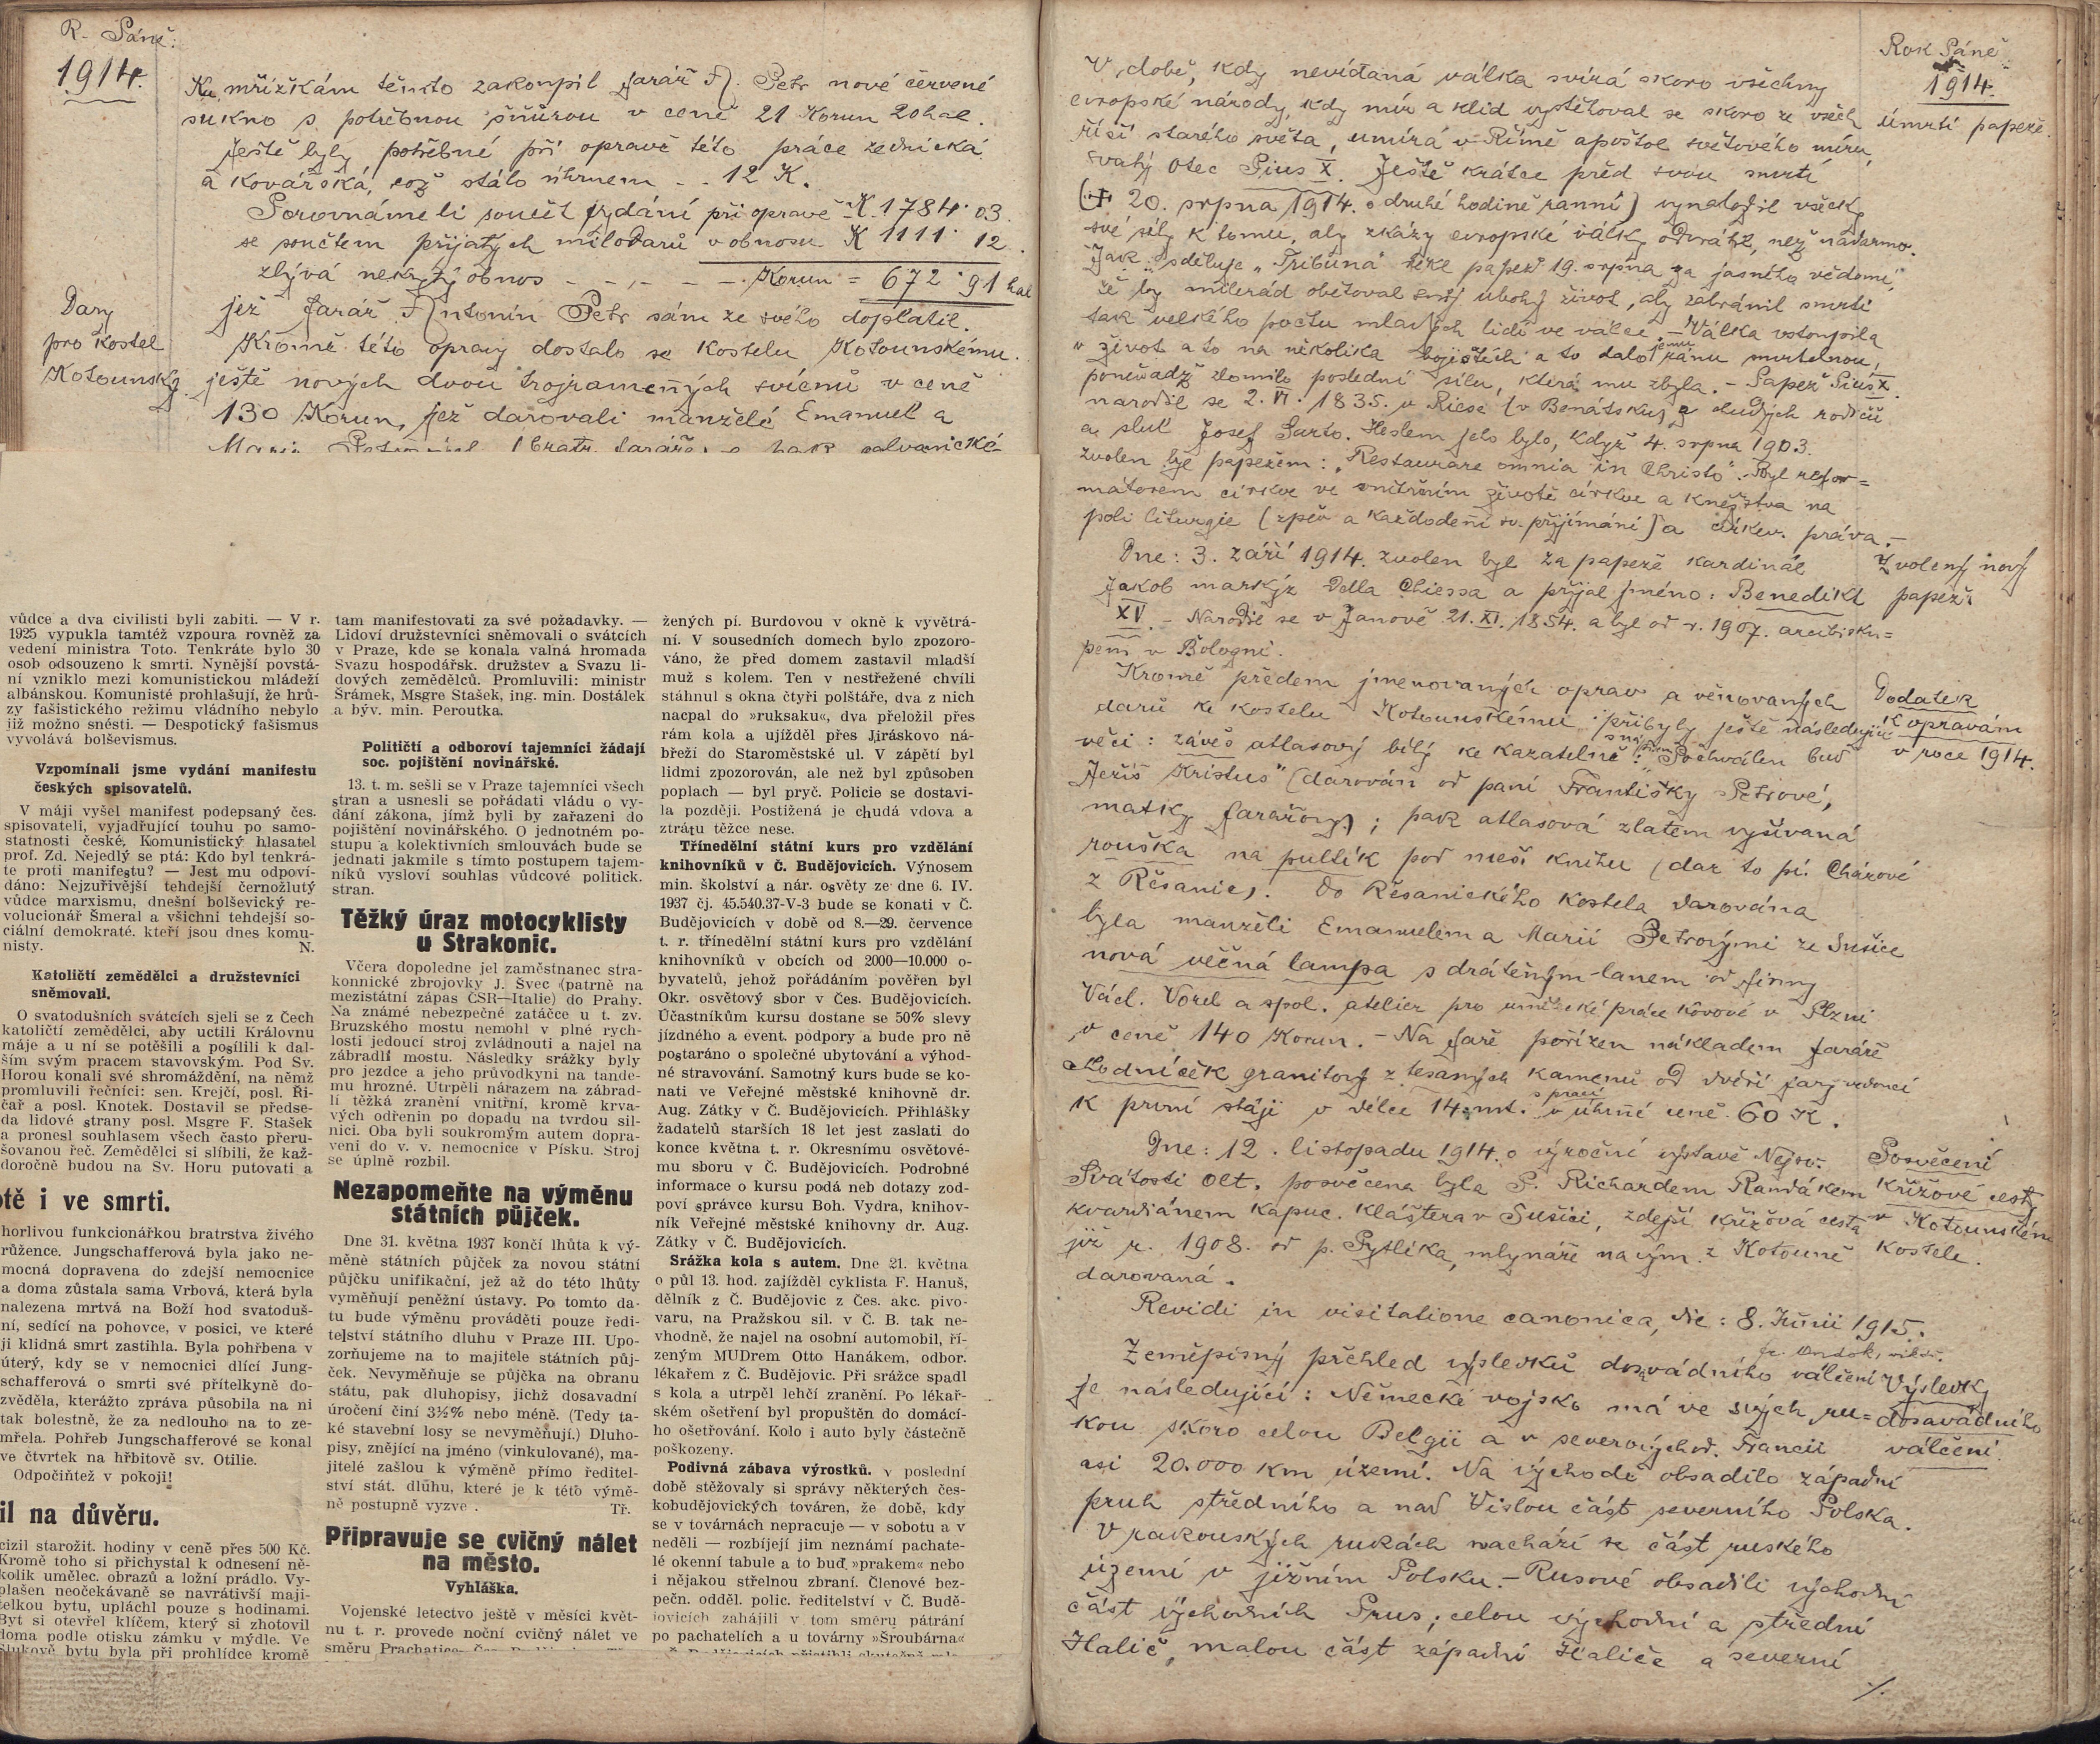 R. Páně:
1914.
Ku mřížkám těmto zakoupil farář A. Petr nové červené
sukno s potřebnou šňůrou v ceně 21 Korun 20 hal.
Ještě byly potřebné při opravě této práce zednická
a kovářská, což stálo úhrnem - - 12 K.
Porovnáme li součet vydání při opravě K. 1784·03.
se součtem přijatých milodarů v obnosu K 1111·12.
zbývá nekrytý obnos - - - - - Korun = 672·91 hal
jež farář Antonín Petr sám ze svého doplatil.
Dary
pro kostel
Kotounský.
Kromě této opravy dostalo se kostelu Kotounskému
ještě nových dvou trojramenných svícnů v ceně
130 Korun, jež darovali manželé Emanuel a
vůdce a dva civilisti byli zabiti. — V r.
1925 vypukla tamtéž vzpoura rovněž za
vedení ministra Toto. Tenkráte bylo 30
osob odsouzeno k smrti. Nynější povstá-
ní vzniklo mezi komunistickou mládeží
albánskou. Komunisté prohlašují, že hrů-
zy fašistického režimu vládního nebylo
již možno snésti. — Despotický fašismus
vyvolává bolševismus.
Vzpomínali jsme vydání manifestu
českých spisovatelů.
V máji vyšel manifest podepsaný čes.
spisovateli, vyjadřující touhu po samo-
statnosti české. Komunistický hlasatel
prof. Zd. Nejedlý se ptá: Kdo byl tenkrá-
te proti manifestu? — Jest mu odpoví-
dáno: Nejzuřivější tehdejší černožlutý
vůdce marxismu, dnešní bolševický re-
volucionář Šmeral a všichni tehdejší so-
ciální demokraté. kteří jsou dnes komu-
nisty. N.
Katoličtí zemědělci a družstevníci
sněmovali.
O svatodušních svátcích sjeli se z Čech
katoličtí zemědělci, aby uctili Královnu
máje a u ní se potěšili a posílili k dal-
ším svým pracem stavovským. Pod Sv.
Horou konali své shromáždění, na němž
promluvili řečníci: sen. Krejčí, posl. Ří-
čař a posl. Knotek. Dostavil se předse-
da lidové strany posl. Msgre F. Stašek
a pronesl souhlasem všech často přeru-
šovanou řeč. Zemědělci si slíbili, že kaž-
doročně budou na Sv. Horu putovati a
otě i ve smrti.
horlivou funkcionářkou bratrstva živého
růžence. Jungschafferová byla jako ne-
mocná dopravena do zdejší nemocnice
a doma zůstala sama Vrbová, která byla
nalezena mrtvá na Boží hod svatoduš-
ní, sedící na pohovce, v posici, ve které
jí klidná smrt zastihla. Byla pohřbena v
úterý, kdy se v nemocnici dlící Jung-
schafferová o smrti své přítelkyně do-
zvěděla, kterážto zpráva působila na ni
tak bolestně, že za nedlouho na to ze-
mřela. Pohřeb Jungschafferové se konal
ve čtvrtek na hřbitově sv. Otilie.
Odpočiňtež v pokoji!
il na důvěru.
cizil starožit. hodiny v ceně přes 500 Kč.
Kromě toho si přichystal k odnesení ně-
kolik umělec. obrazů a ložní prádlo. Vy-
plašen neočekávaně se navrátivší maji-
telkou bytu, upláchl pouze s hodinami.
Byt si otevřel klíčem, který si zhotovil
doma podle otisku zámku v mýdle. Ve
Šlukově bytu byla při prohlídce kromě
tam manifestovati za své požadavky. —
Lidoví družstevníci sněmovali o svátcích
v Praze, kde se konala valná hromada
Svazu hospodářsk. družstev a Svazu li-
dových zemědělců. Promluvili: ministr
Šrámek, Msgre Stašek, ing. min. Dostálek
a býv. min. Peroutka.
Političtí a odboroví tajemníci žádají
soc. pojištění novinářské.
13. t. m. sešli se v Praze tajemníci všech
stran a usnesli se pořádati vládu o vy-
dání zákona, jímž byli by zařazeni do
pojištění novinářského. O jednotném po-
stupu a kolektivních smlouvách bude se
jednati jakmile s tímto postupem tajem-
níků vysloví souhlas vůdcové politick.
stran.
Těžký úraz motocyklisty
u Strakonic.
Včera dopoledne jel zaměstnanec stra-
konnické zbrojovky J. Švec (patrně na
mezistátní zápas ČSR—Italie) do Prahy.
Na známé nebezpečné zatáčce u t. zv.
Bruzského mostu nemohl v plné rych-
losti jedoucí stroj zvládnouti a najel na
zábradlí mostu. Následky srážky byly
pro jezdce a jeho průvodkyni na tande-
mu hrozné. Utrpěli nárazem na zábrad-
lí těžká zranění vnitřní, kromě krva-
vých odřenin po dopadu na tvrdou sil-
nici. Oba byli soukromým autem dopra-
veni do v. v. nemocnice v Písku. Stroj
se úplně rozbil.
Nezapomeňte na výměnu
státních půjček.
Dne 31. května 1937 končí lhůta k vý-
měně státních půjček za novou státní
půjčku unifikační, jež až do této lhůty
vyměňují peněžní ústavy. Po tomto da-
tu bude výměnu prováděti pouze ředi-
telství státního dluhu v Praze III. Upo-
zorňujeme na to majitele státních půj-
ček. Nevyměňuje se půjčka na obranu
státu, pak dluhopisy, jichž dosavadní
úročení činí 3½% nebo méně. (Tedy ta-
ké stavební losy se nevyměňují.) Dluho-
pisy, znějící na jméno (vinkulované), ma-
jitelé zašlou k výměně přímo ředitel-
ství stát. dluhu, které je k této výmě-
ně postupně vyzve . Tř.
Připravuje se cvičný nálet
na město.
Vyhláška.
Vojenské letectvo ještě v měsíci květ-
nu t. r. provede noční cvičný nálet ve
směru Prachatice
žených pí. Burdovou v okně k vyvětrá-
ní. V sousedních domech bylo zpozoro-
váno, že před domem zastavil mladší
muž s kolem. Ten v nestřežené chvíli
stáhnul s okna čtyři polštáře, dva z nich
nacpal do »ruksaku«, dva přeložil přes
rám kola a ujížděl přes Jiráskovo ná-
břeží do Staroměstské ul. V zápětí byl
lidmi zpozorován, ale než byl způsoben
poplach — byl pryč. Policie se dostavi-
la později. Postižená je chudá vdova a
ztrátu těžce nese.
Třínedělní státní kurs pro vzdělání
knihovníků v Č. Budějovicích. Výnosem
min. školství a nár. osvěty ze dne 6. IV.
1937 čj. 45.540.37-V-3 bude se konati v Č.
Budějovicích v době od 8.—29. července
t. r. třínedělní státní kurs pro vzdělání
knihovníků v obcích od 2000—10.000 o-
byvatelů, jehož pořádáním pověřen byl
Okr. osvětový sbor v Čes. Budějovicích.
Účastníkům kursu dostane se 50% slevy
jízdného a event. podpory a bude pro ně
postaráno o společné ubytování a výhod-
né stravování. Samotný kurs bude se ko-
nati ve Veřejné městské knihovně dr.
Aug. Zátky v Č. Budějovicích. Přihlášky
žadatelů starších 18 let jest zaslati do
konce května t. r. Okresnímu osvětové-
mu sboru v Č. Budějovicích. Podrobné
informace o kursu podá neb dotazy zod-
poví správce kursu Boh. Vydra, knihov-
ník Veřejné městské knihovny dr. Aug.
Zátky v Č. Budějovicích.
Srážka kola s autem. Dne 21. května
o půl 13. hod. zajížděl cyklista F. Hanuš,
dělník z Č. Budějovic z Čes. akc. pivo-
varu, na Pražskou sil. v Č. B. tak ne-
vhodně, že najel na osobní automobil, ří-
zeným MUDrem Otto Hanákem, odbor.
lékařem z Č. Budějovic. Při srážce spadl
s kola a utrpěl lehčí zranění. Po lékař-
ském ošetření byl propuštěn do domácí-
ho ošetřování. Kolo i auto byly částečně
poškozeny.
Podivná zábava výrostků. V poslední
době stěžovaly si správy některých čes-
kobudějovických továren, že době, kdy
se v továrnách nepracuje — v sobotu a v
neděli — rozbíjejí jim neznámí pachate-
lé okenní tabule a to buď »prakem« nebo
i nějakou střelnou zbraní. Členové bez-
pečn. odděl. polic. ředitelství v Č. Budě-
jovicích zahájili v tom směru pátrání
po pachatelích a u továrny »Šroubárna«
Rok Páně
1914.
úmrtí papeže.
V době, kdy nevídaná válka svírá skoro všechny
evropské národy, kdy mír a klid vystěhoval se skoro ze všech
říší starého světa, umírá v Římě apoštol světového míru,
svatý Otec Pius X. Ještě krátce před svou smrtí
(✝ 20. srpna 1914. o druhé hodině ranní) vynaložil všecky
své síly k tomu, aby zkázy evropské války odvrátil, než nadarmo.
Jak sděluje „Tribuna" řekl papež 19. srpna za jasného vědomí,
že by milerád obětoval svůj ubohý život, aby zabránil smrti
tak velkého počtu mladých lidí ve válce. — Válka vstoupila
v život a to na několika bojištích a to dalo jemu ránu smrtelnou,
poněvadž zlomilo poslední sílu, která mu zbyla. - Papež Pius X.
narodil se 2. VI. 1835. v Riese (v Benátsku) z chudých rodičů
a slul Josef Sarto. Heslem jeho bylo, když 4. srpna 1903.
zvolen byl papežem: „Restaurare omnia in Christo". Byl refor=
mátorem církve ve vnitřním životě církve a kněžstva na
poli liturgie (zpěv a každodení sv. přijímání) a církev. práva. —
Zvolený nový
papež.
Dne: 3. září 1914. zvolen byl za papeže kardinál
Jakob markýz Della Chiessa a přijal jméno: Benedikt
XV. - Narodil se v Janově 21. XI. 1854. a byl od r. 1907. arcibisku=
pem v Bologni.
Dodatek
k opravám
v roce 1914.
Kromě předem jmenovaných oprav a věnovaných
darů ke kostelu Kotounskému přibyly ještě následující
věci: závěs atlasový bílý ke kazatelně: „Pochválen buď
Ježíš Kristus" (darován od paní Františky Petrové,
matky farářovy); pak atlasová zlatem vyšívaná
rouška na pultík pod mešní knihu (dar to pí. Cházové
z Řesanic). Do Řesanického kostela darována
byla manželi Emanuelem a Marií Petrovými ze Sušice
nová věčná lampa s drátěným lanem od firmy
Václ. Vorel a spol. atelier pro umělecké práce kovové v Plzni
v ceně 140 Korun. - Na faře pořízen nákladem faráře
chodníček granitový z tesaných kamenů od dvéří fary vedoucí
k první stáji v délce 14 mt. s prací v úhrné ceně 60 K.
Posvěcení
křížové cesty
v Kotounském
kostele.
Dne: 12. listopadu 1914. o výroční výstavě Nejsv.
Svátosti Olt. posvěcena byla P. Richardem Randákem
kvardiánem kapuc. kláštera v Sušici, zdejší křížová cesta
již r. 1908. od p. Pytlíka, mlynáře na vým. z Kotouně
darovaná.
Revidi in visitatione canonica, die: 8. Junii 1915.
Výsledky
dosavádního
válčení.
Zeměpisný přehled výsledků dosavádního válčení
je následující: Německé vojsko má ve svých ru=
kou skoro celou Belgii a v severových. Francii
asi 20.000 km území. Na východě obsadilo západní
pruh středního a nad Vislou část severního Polska.
V rakouských rukách nachází se část ruského
území v jižním Polsku. - Rusové obsadili východní
část východních Prus, celou východní a střední
Halič, malou část západní Haliče a severní
./.